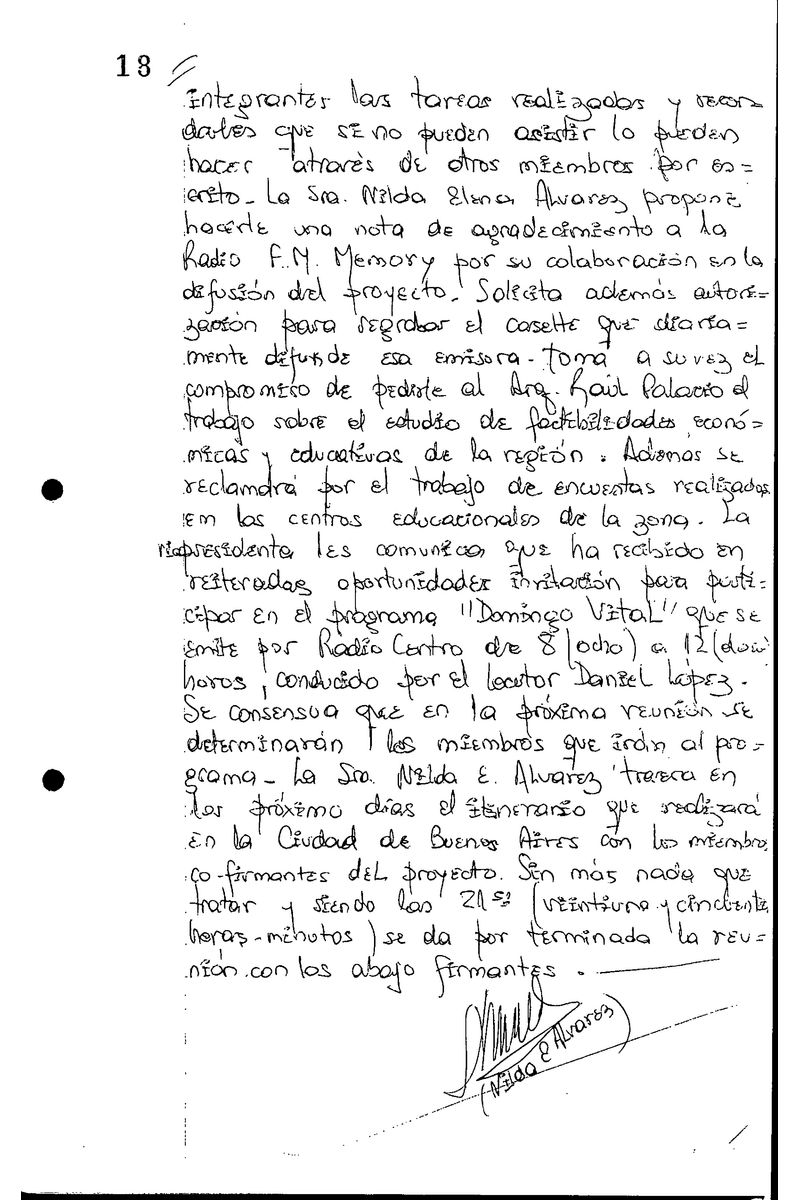 18
integrantes las tareas realizadas y recor
darles que si no pueden asistir lo pueden
hacer através de otros miembros por es=
crito - La Sra. Nilda Elena Alvarez propone
hacerle una nota de agradecimiento a la
Radio F.M. Memory por su colaboración en la
difusión del proyecto. Solicita además autori=
zación para regrabar el casette que diaria=
mente difunde esa emisora - toma a su vez el
compromiso de pedirle al Arq. Raúl Palacio el
trabajo sobre el estudio de factibilidades econó=
micas y educativas de la región. Ademas se
reclamará por el trabajo de encuestas realizadas
em los centros educacionales de la zona. La
presidenta les comunica que ha recibido en
reiteradas oportunidades invitación para parti=
cipar en el programa "Domingo Vital" que se
emite por Radio Centro de 8 (ocho) a 12 (doce
horas, conducido por el locutor Daniel López.
Se consensua que en la próxima reunión se
determinarán los miembros que irán al pro=
grama - La Sra. Nilda E. Alvarez traera en
los próximo días el itinerario que realizará
en la Ciudad de Buenos Aires con los miembro
co-firmantes del proyecto. Sin más nada que
tratar y siendo las 21 (veintiuna y cincuenta
horas-minutos) se da por terminada la reu=
nión con los abajo firmantes.
(Nilda E Alvarez)